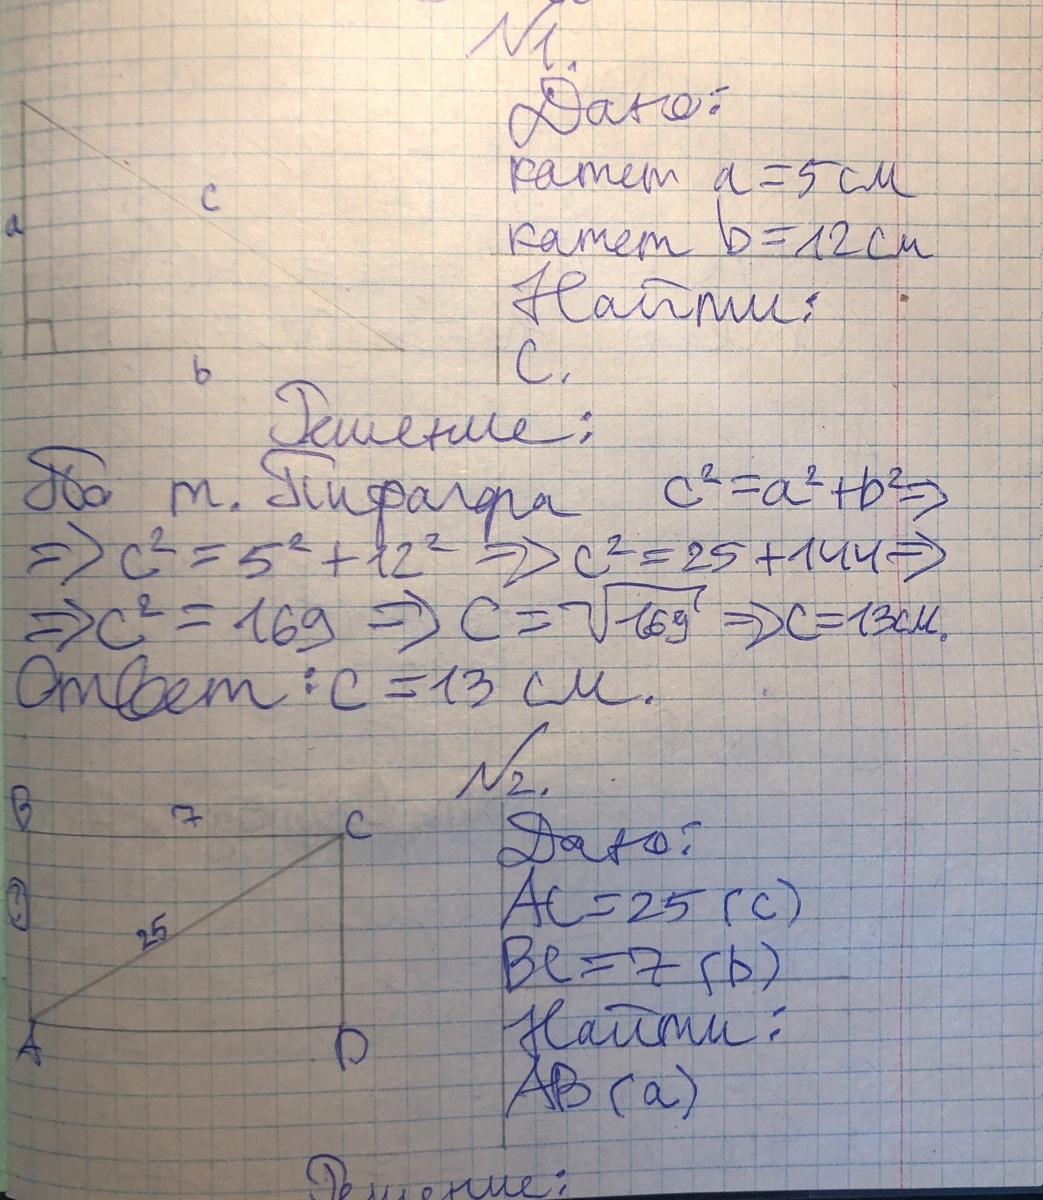 №1.
Дано:
катет a = 5 см
катет b = 12 см
Найти:
c.
a
c
b
Решение:
По т. Пифагора c² = a² + b² =>
=> c² = 5² + 12² => c² = 25 + 144 =>
=> c² = 169 => c = √169 => c = 13 см.
Ответ: c = 13 см.
№2.
B 7 C
?
25
A D
Дано:
AC = 25 (c)
BC = 7 (b)
Найти:
AB (a)
Решение: